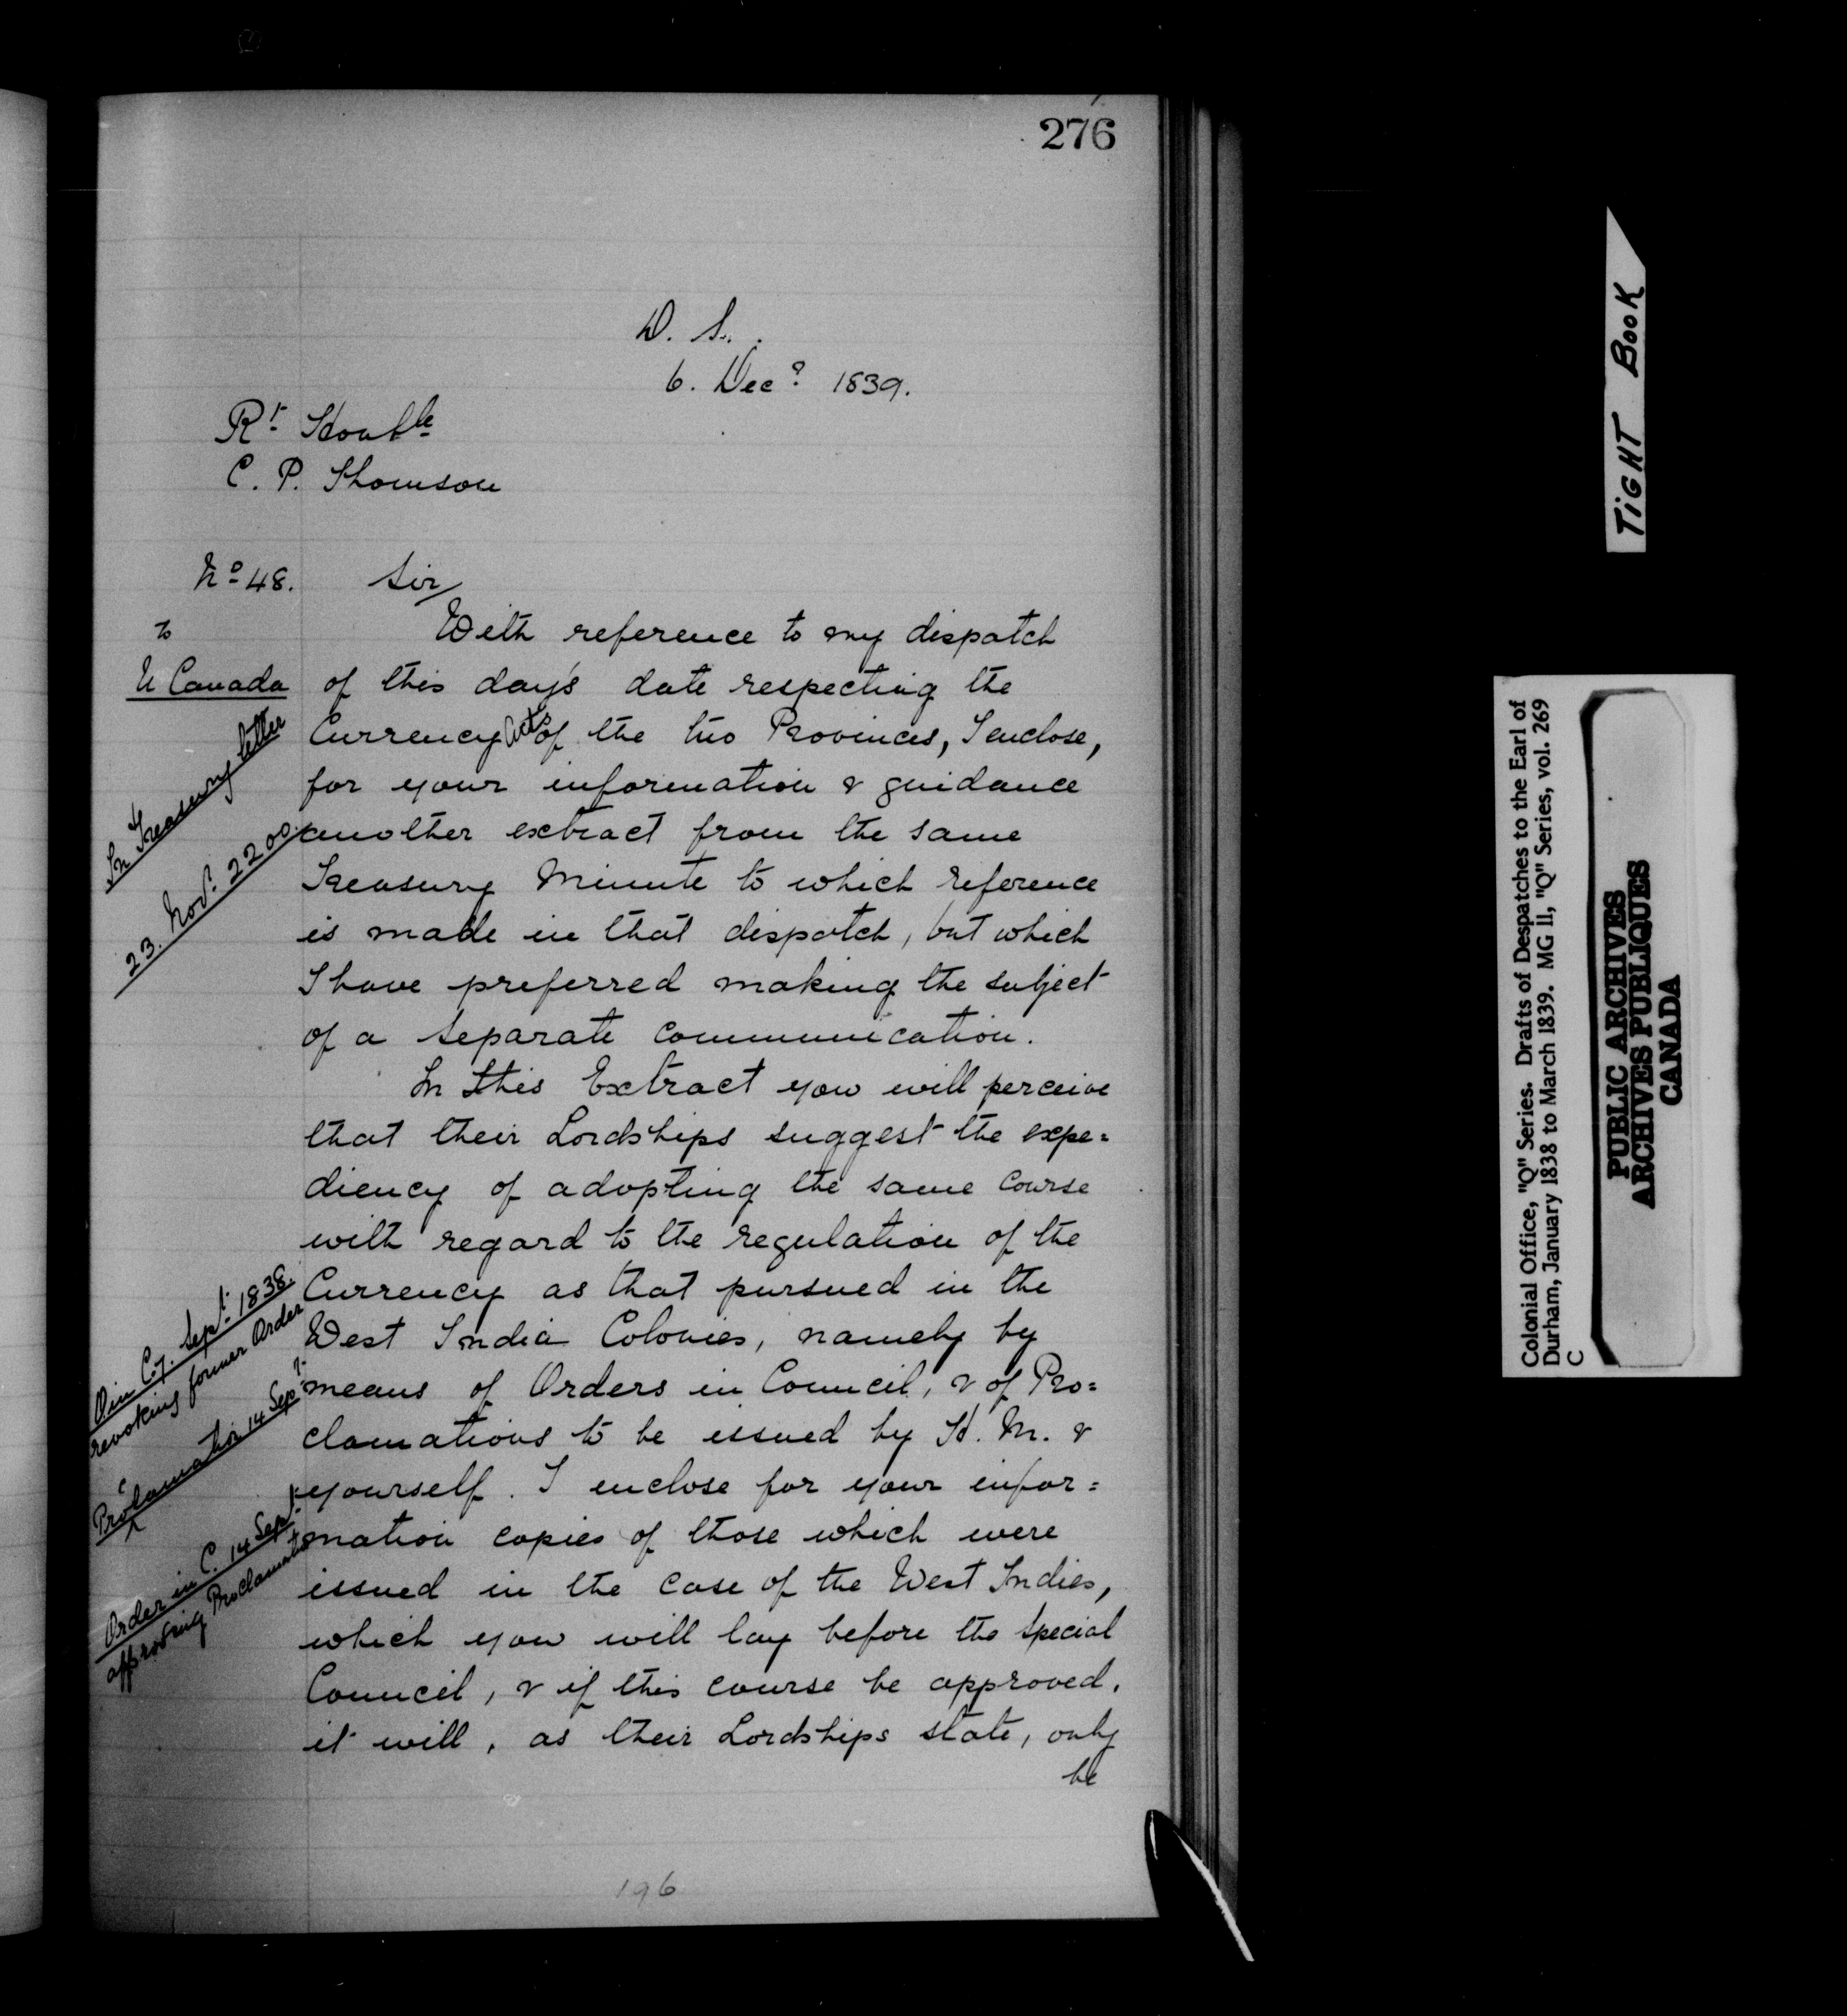 276
D. S.
6. Decr 1839.
Rt. Honble
C. P. Thomson
No 48. Sir
to
U Canada
In Treasury letter
23. Novr. 2200.
With reference to my dispatch
of this day's date respecting the
Currency Acts of the two Provinces, I enclose,
for your information & guidance
another extract from the same
Treasury Minute to which reference
is made in that dispatch, but which
I have preferred making the subject
of a separate communication.
In this Extract you will perceive
that their Lordships suggest the expe=
diency of adopting the same course
with regard to the regulation of the
Currency as that pursued in the
West India Colonies, namely by
means of Orders in Council, & of Pro=
clamations to be issued by H. M. &
yourself. I enclose for your infor=
mation copies of those which were
issued in the case of the West Indies,
which you will lay before the special
Council, & if this course be approved,
it will, as their Lordships state, only
be
O in C. 7. Sept. 1838.
revoking former Order
Proclamation 14 Sept.
Order in C. 14 Sept.
approving Proclamation
196
TIGHT BOOK
Colonial Office, "Q" Series. Drafts of Despatches to the Earl of
Durham, January 1838 to March 1839. MG 11, "Q" Series, vol. 269
C
PUBLIC ARCHIVES
ARCHIVES PUBLIQUES
CANADA